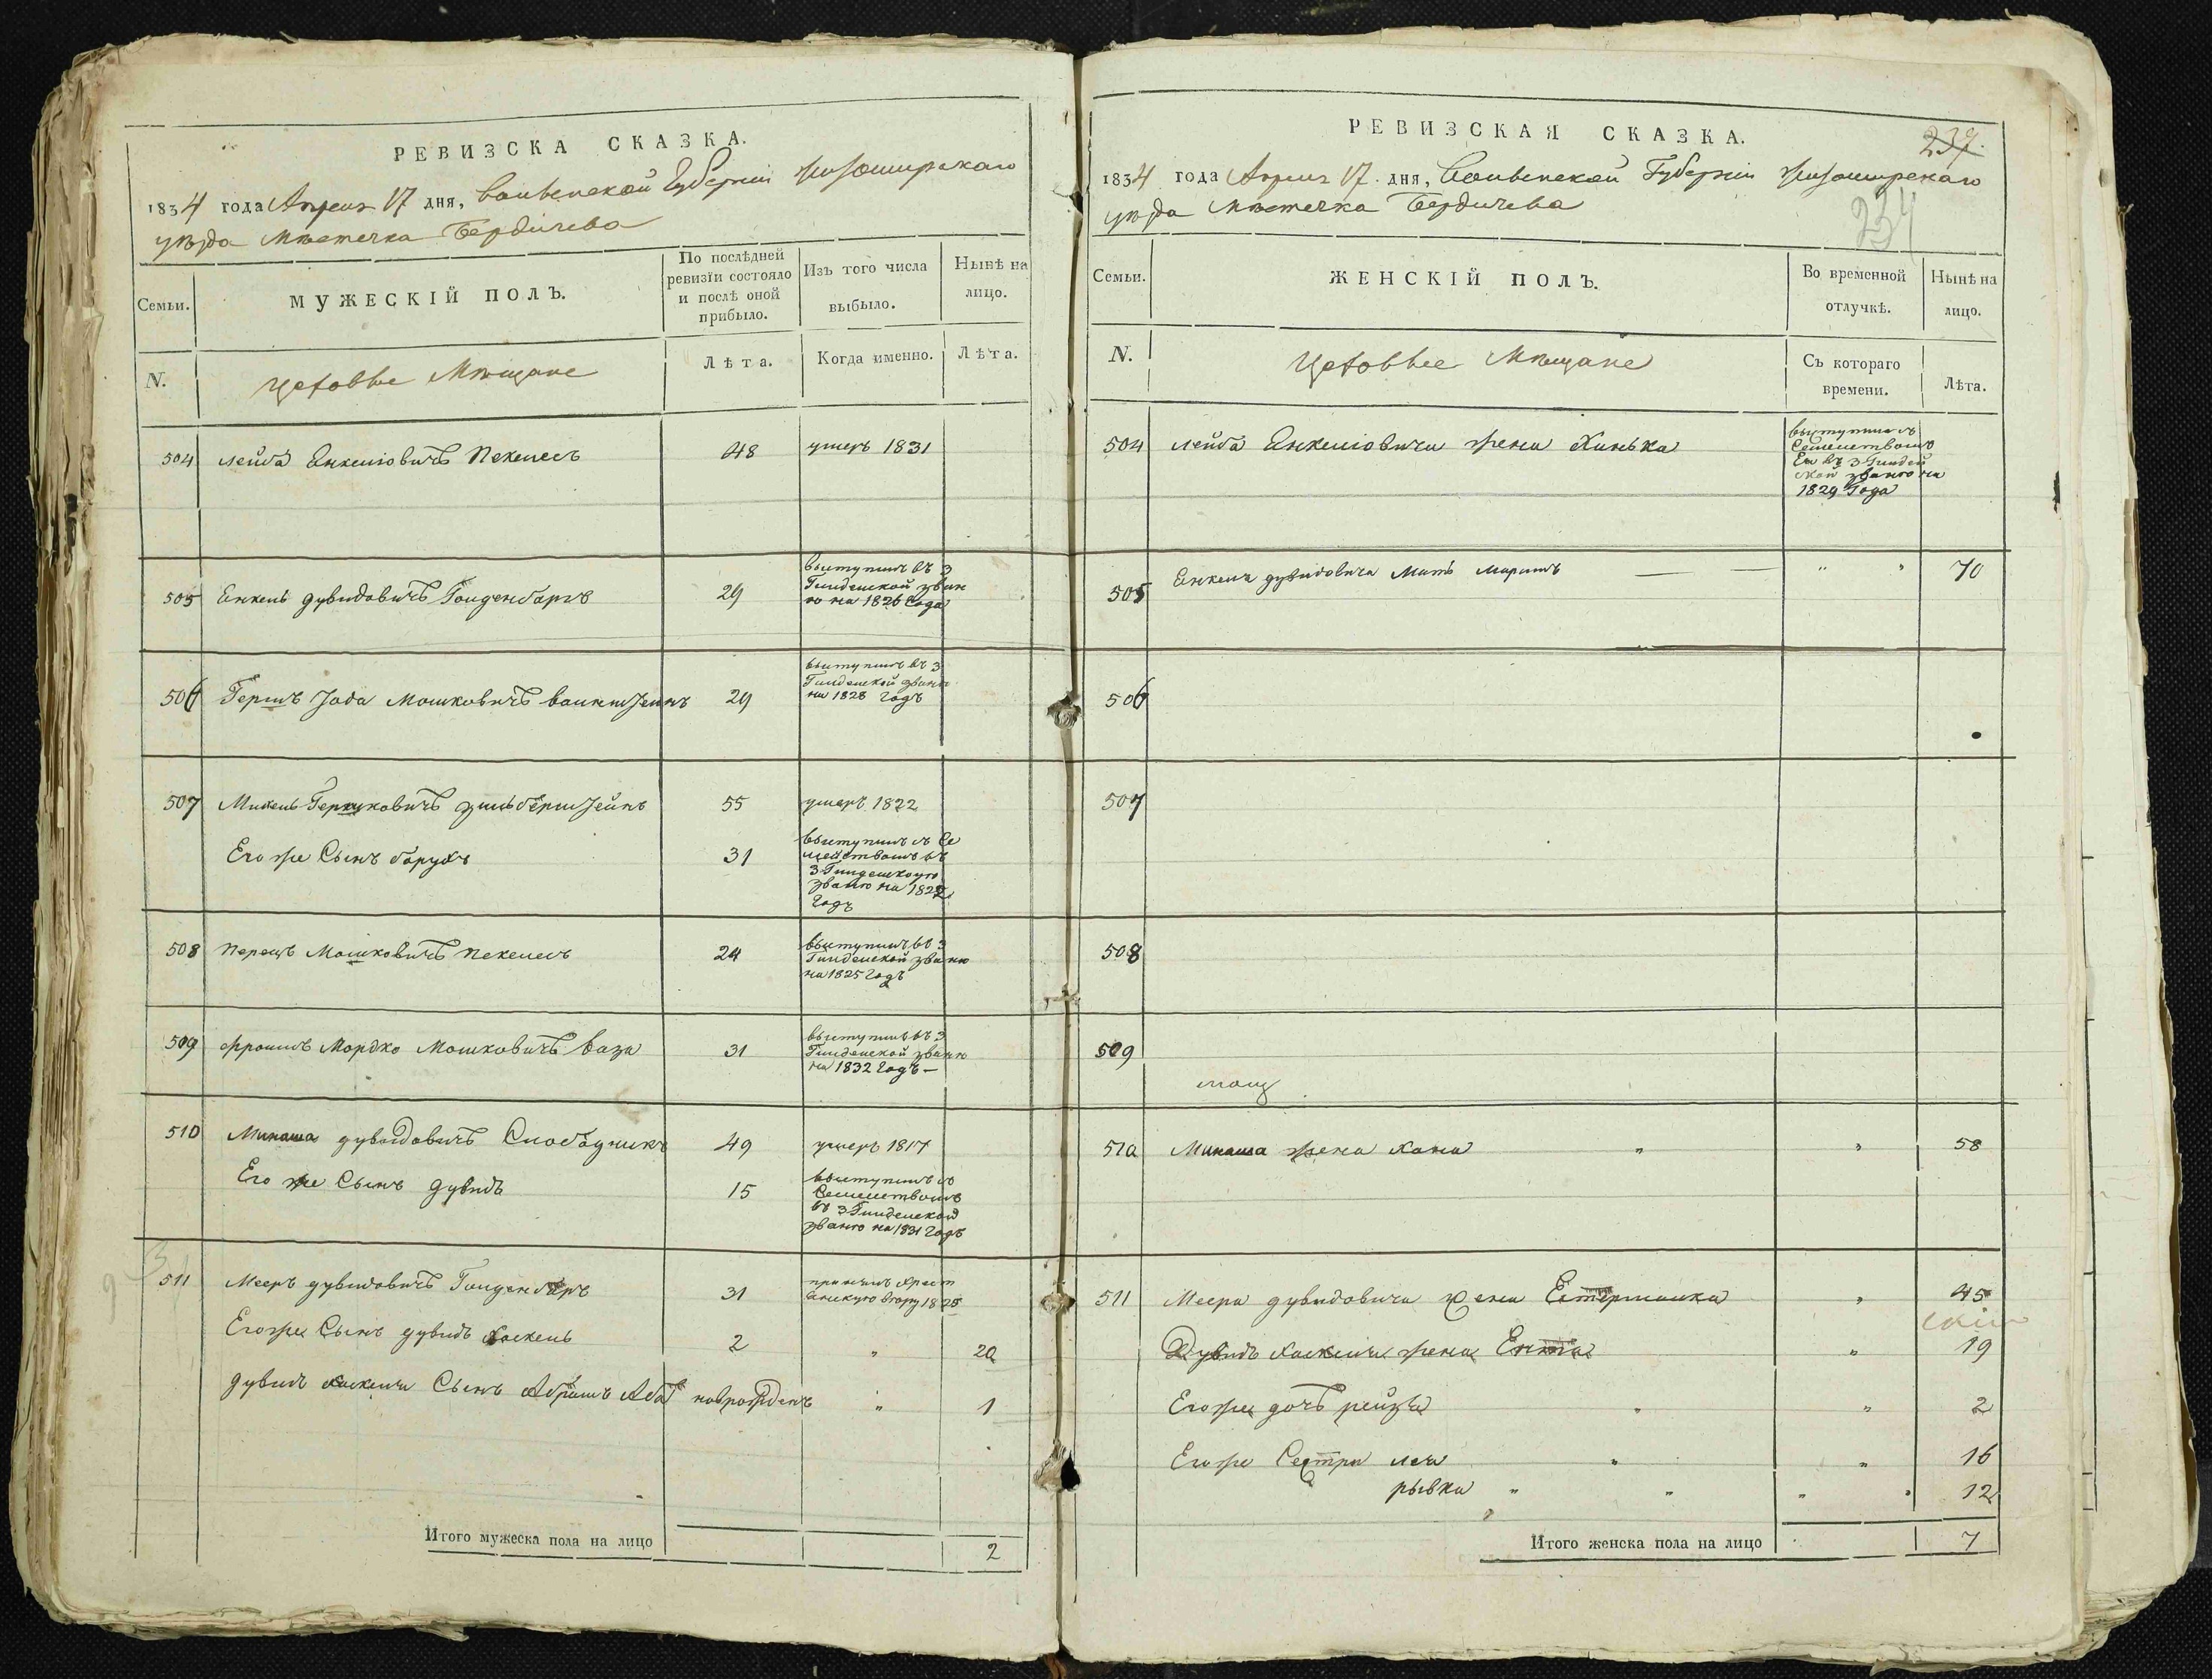 РЕВИЗСКА СКАЗКА.
1834 года Апреля 17 дня, Волынской Губернии Житомирскаго
уѣзда Мѣстечка Бердичева
Семьи.
МУЖЕСКІЙ ПОЛЪ.
По послѣдней ревизіи состояло и послѣ оной прибыло.
Изъ того числа выбыло.
Нынѣ на лицо.
N.
Цеховые Мѣщане
Лѣта.
Когда именно.
Лѣта.
504 Лейба Енкелiовичъ Пекелесъ 48 умеръ 1831
505 Енкель Дувидовичъ Голденбаргъ 29
выступилъ въ 3
Гилдейской зван
ію на 1826 Года
506 Гершъ Мошковичъ 29
выступилъ въ 3
Гилдейской зван
на 1828 Годъ
507 55 умеръ 1822
Его же Сынъ Борухъ 31
выступилъ съ Се
мействомъ въ
3 Гилдейскую
званію на 1822
Годъ
508 Перецъ Мошковичъ Пекелесъ 24
выступилъ въ 3
Гилдейской званію
на 1825 Годъ
509 Мордко Мошковичъ Ваза 31
выступилъ въ 3
Гилдейской званію
на 1832 Годъ —
510 Минаша Дувидовичъ Слободникъ 49 умеръ 1817
Его же Сынъ Дувидъ 15
выступилъ съ
Семействомъ
въ 3 Гилдейской
званію на 1831 Годъ
511 Мееръ Дувидовичъ 31
принялъ Хрест
анскую веру 1825
Его же Сынъ Дувидъ Хаскель 2 " 20
Дувидъ Хаскеля Сынъ Абрамъ Аба новрожденъ " 1
Итого мужеска пола на лицо 2
РЕВИЗСКАЯ СКАЗКА.
239.
1834 года Апреля 17 дня, Волынской Губернии Житомирскаго
уѣзда Мѣстечка Бердичева
234
Семьи.
ЖЕНСКІЙ ПОЛЪ.
Во временной отлучкѣ.
Нынѣ на лицо.
N.
Цеховые Мѣщане
Съ котораго времени.
Лѣта.
504 Лейба Енкелiовича жена Хинька
выступила съ
Семействомъ
Ея въ 3 Гилдей
ской званію на
1829 Года
505 Енкеля Дувидовича Мать " " 70
506
507
508
509
510 Минаша жена Хана " " 58
511 Меера Дувидовича жена " 45
Дувидъ Хаскеля жена Ента " 19
Его же дочь Рейза " " 2
Его же Сестра Лея " " 16
Рывка " " " " 12
Итого женска пола на лицо 7